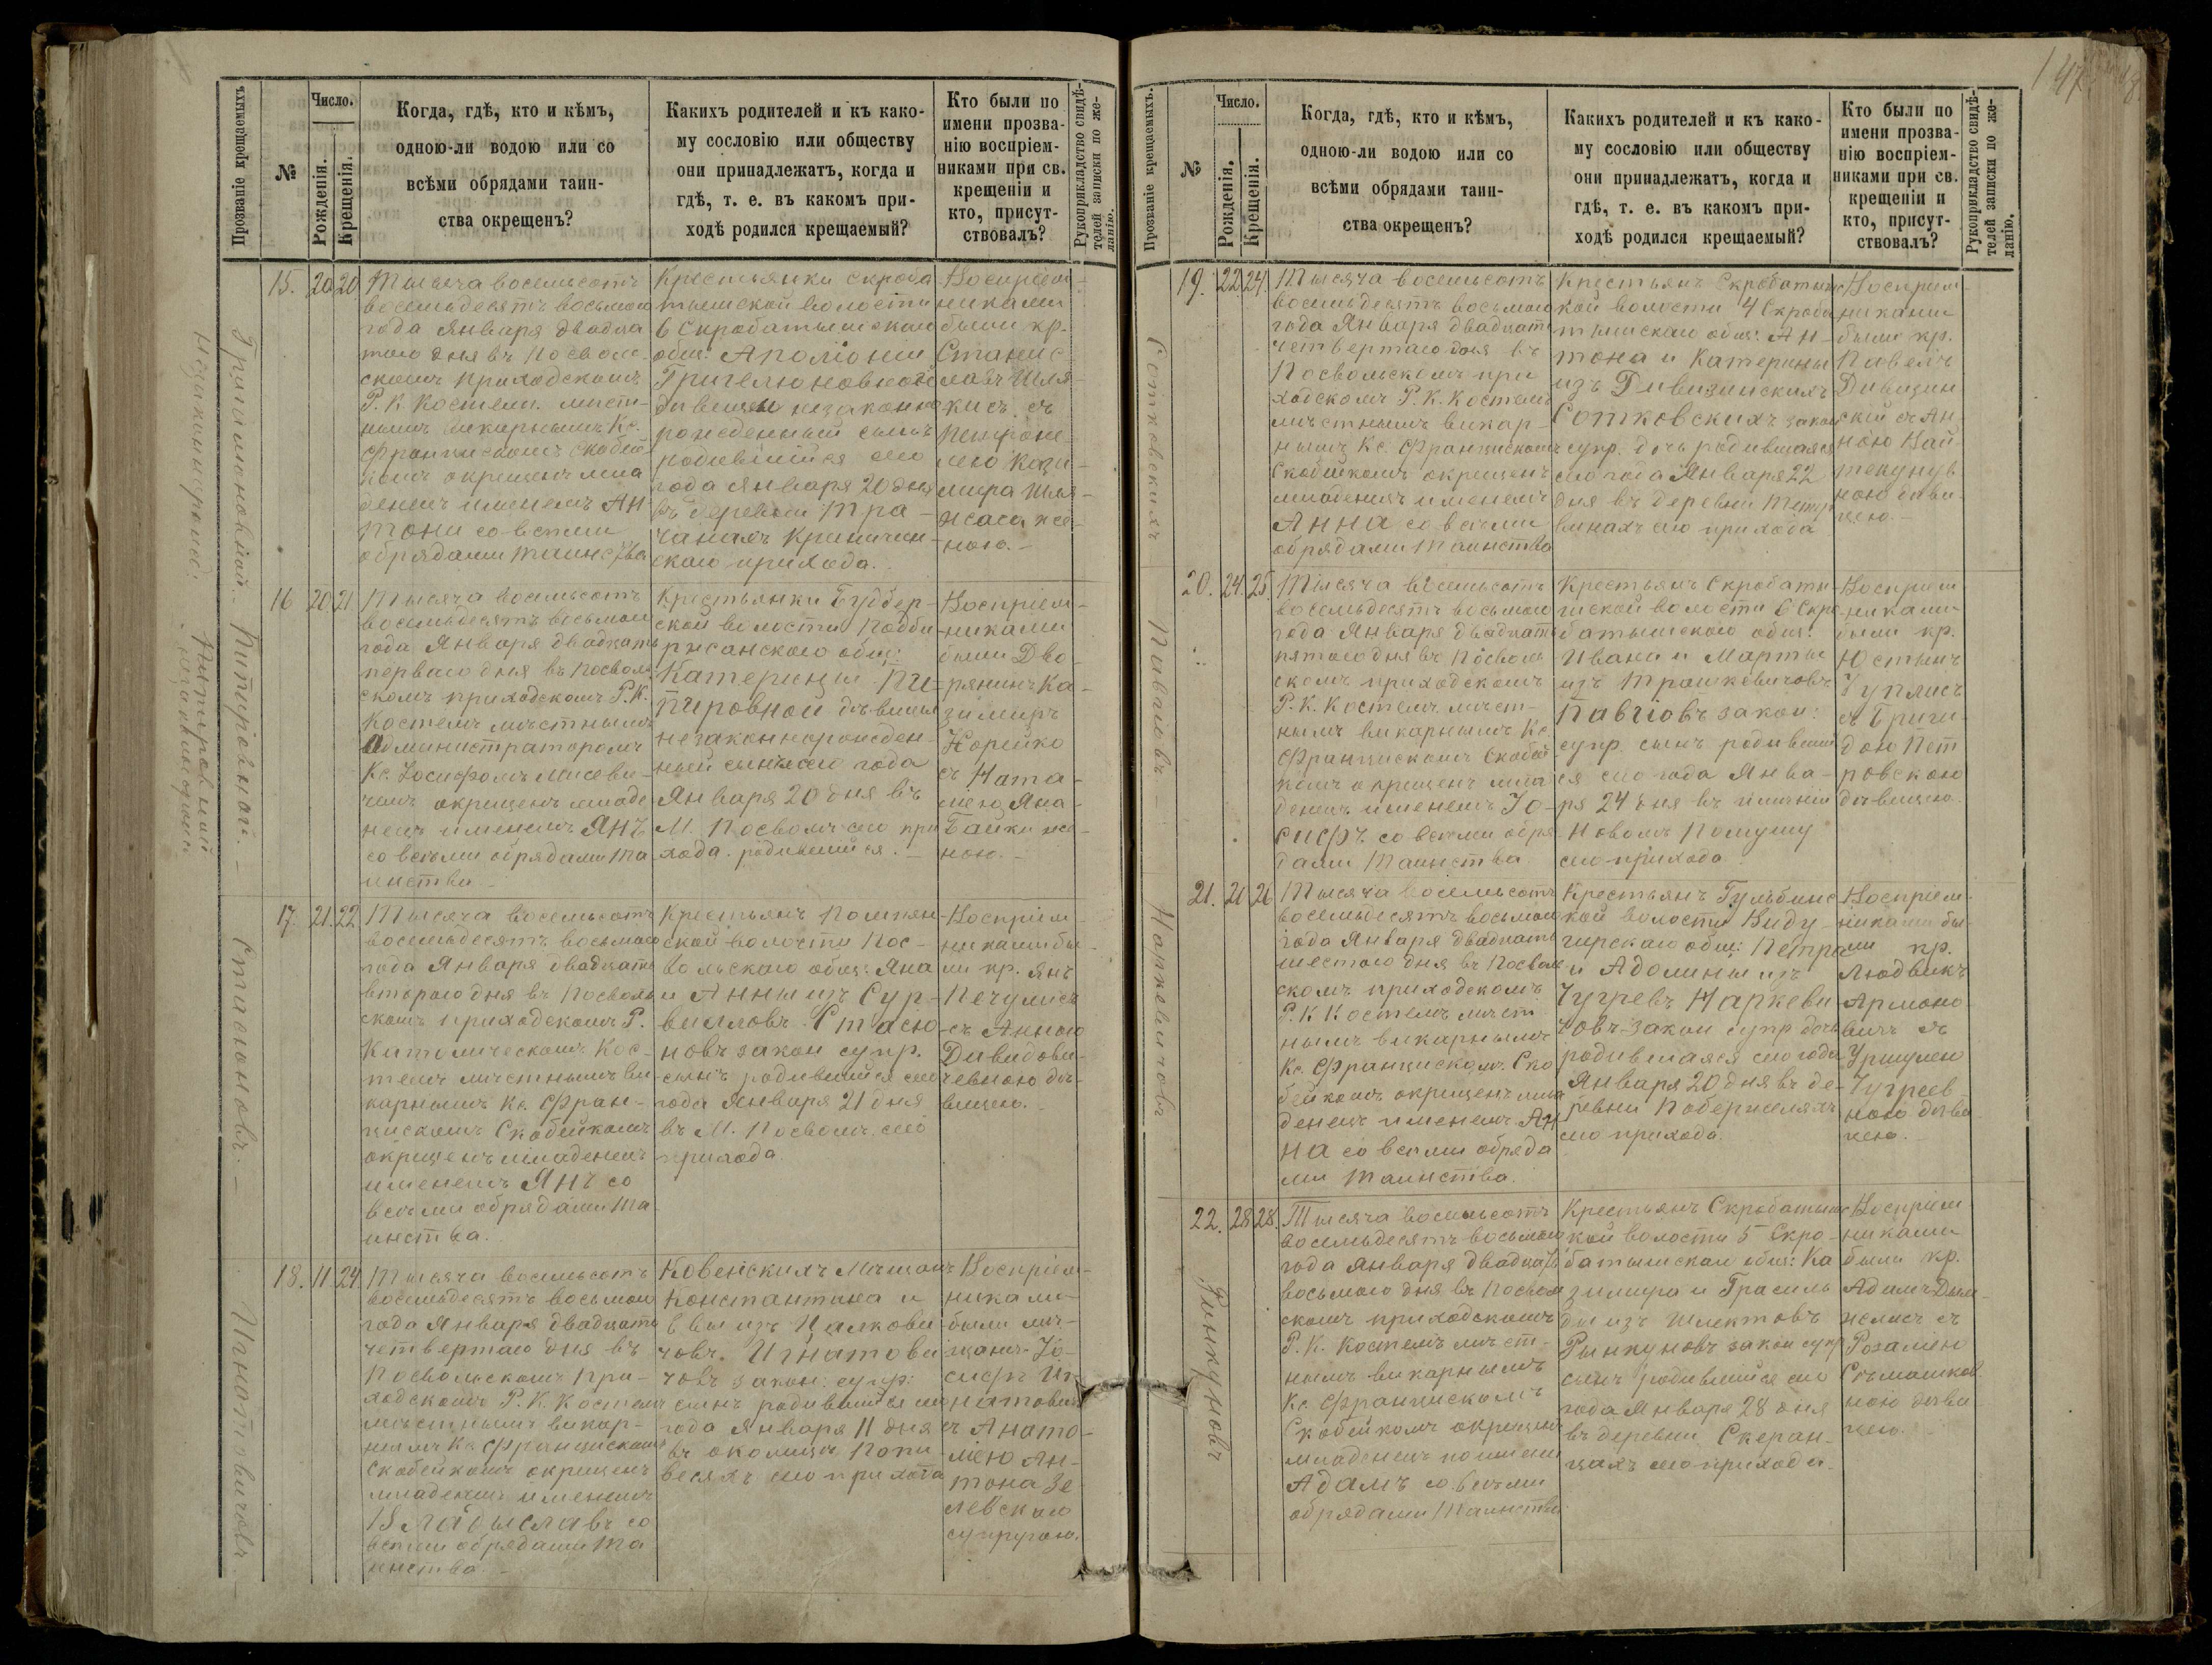 147
Прозваніе крещаемыхъ
№
Число.
Рожденія.
Крещенія.
Когда, гдѣ, кто и кѣмъ,
одною-ли водою или со
всѣми обрядами таин-
ства окрещенъ?
Какихъ родителей и къ како-
му сословію или обществу
они принадлежатъ, когда и
гдѣ, т. е. въ какомъ при-
ходѣ родился крещаемый?
Кто были по
имени прозва-
нію воспріем-
никами при св.
крещеніи и
кто, присут-
ствовалъ?
Рукоприкладство свидѣ-
телей записки по же-
ланію.
15. 20 20
Тысяча восемьсотъ
восемьдесятъ восьмаго
года Января двадца
таго дня въ Посволь-
скомъ приходскомъ
Р. К. Костелѣ мѣст-
нымъ викарнымъ Кс.
Францискомъ Скобей
комъ окрещенъ мла
денецъ именемъ Ан
тони со всѣми
обрядами таинства
Крестьянки Скроба
тышской волости
6 Скробатышскаго
общ: Аполіоніи
Григелюновной
дѣвицы незаконно
рожденный сынъ
родившійся сего
года Января 20 дня
въ деревни Тра-
чанахъ Криничин-
скаго прихода.
Воспріем-
никами
были кр.
Станис-
лавъ Шля-
жисъ съ
Петроне-
лею Кази-
мира Шля-
жаса же-
ною.
16 20 21
Тысяча восемьсотъ
восемьдесятъ восьмаго
года Января двадцать
перваго дня въ Посволь
скомъ приходскомъ Р. К.
Костелѣ мѣстнымъ
Администраторомъ
Кс. Іосифомъ Мисеви-
чемъ окрещенъ младе
нецъ именемъ Янъ
со всѣми обрядами та
инства
Крестьянки Гудбер-
ской волости Подби-
ржанскаго общ:
Катерины Пи-
пировной дѣвицы
незаконнорожден-
ный сынъ сего года
Января 20 дня въ
М. Посволѣ сего при
хода родившійся.
Воспріем-
никами
были Дво-
рянинъ Ка-
зимиръ
Корейко
съ Ната-
лею Яна-
Байки же-
ною.
17. 21. 22
Тысяча восемьсотъ
восемьдесятъ восьмаго
года Января двадцать
втораго дня въ Посволь
скомъ приходскомъ Р.
Католическомъ Кос-
телѣ мѣстнымъ ви
карнымъ Кс. Фран-
цискомъ Скобейкомъ
окрещенъ младенецъ
именемъ Янъ со
всѣми обрядами та
инства.
Крестьянъ Помпян-
ской волости Пос-
вольскаго общ: Яна
и Анны изъ Сур-
вилловъ Стасю-
новъ закон супр.
сынъ родившійся сего
года Января 21 дня
въ М. Посволѣ сего
прихода
Воспріем-
никами бы-
ли кр. Янъ
Печулисъ
съ Анною
Давидови-
чевною дѣ-
вицею.
18. 11. 24
Тысяча восемьсотъ
восемьдесятъ восьмаго
года Января двадцать
четвертаго дня въ
Посвольскомъ при-
ходскомъ Р. К. Костелѣ
мѣстнымъ викар-
нымъ Кс. Францискомъ
Скобейкомъ окрещенъ
младенецъ именемъ
Владыславъ со
всѣми обрядами та
инства
Ковенскихъ Мѣщанъ
Константина и
Евы изъ Цалкови
човъ Игнатови
човъ закон: супр:
сынъ родившійся сего
года Января 11 дня
въ околицѣ Попи
весяхъ сего прихода
Воспріем-
никами
были мѣ-
щанъ Іо-
сифъ Иг
натовичъ
съ Анато-
ліею Ан-
тона Зе-
левскаго
супругою.
Григилюновный незаконнорожд.
Пипировный незаконнорожд.
Стасюновъ.
Игнатовичовъ.
Прозваніе крещаемыхъ.
№
Число.
Рожденія.
Крещенія.
Когда, гдѣ, кто и кѣмъ,
одною-ли водою или со
всѣми обрядами таин-
ства окрещенъ?
Какихъ родителей и къ како-
му сословію или обществу
они принадлежатъ, когда и
гдѣ, т. е. въ какомъ при-
ходѣ родился крещаемый?
Кто были по
имени прозва-
нію воспріем-
никами при св.
крещеніи и
кто, присут-
ствовалъ?
Рукоприкладство свидѣ-
телей записки по же-
ланію.
19. 22 24.
Тысяча восемьсотъ
восемьдесятъ восьмаго
года Января двадцать
четвертаго дня въ
Посвольскомъ при
ходскомъ Р. К. Костелѣ
мѣстнымъ викар-
нымъ Кс. Францискомъ
Скобейкомъ окрещенъ
младенецъ именемъ
Анна со всѣми
обрядами таинства
Крестьянъ Скробатышс
кой волости 4 Скроба
тышскаго общ: Ан-
тона и Катерины
изъ Дивизинскихъ
Сотковскихъ закон
супр. дочь родившаяся
сего года Января 22
дня въ деревни Тетер
винахъ сего прихода
Воспріем
никами
были кр.
Павелъ
Дивизин
скій съ Ан-
ною Най-
текунув
ною дѣви-
цею.
20. 24. 25.
Тысяча восемьсотъ
восемьдесятъ восьмаго
года Января двадцать
пятаго дня въ Посволь
скомъ приходскомъ
Р. К. Костелѣ мѣст-
нымъ викарнымъ Кс.
Францискомъ Скобей
комъ окрещенъ мла
денецъ именемъ Іо-
сифъ со всѣми обря
дами таинства
Крестьянъ Скробаты-
шской волости 6 Скро
батышскаго общ:
Ивана и Марты
изъ Трашкевичовъ
Павгіовъ закон:
супр. сынъ родивший
ся сего года Янва-
ря 24 дня въ имѣніи
Новомъ Помушу
сего прихода
Воспріем
никами
были кр.
Юстынъ
Туплисъ
съ Бриги-
дою Пет
ровскою
дѣвицею.
21. 21 26
Тысяча восемьсотъ
восемьдесятъ восьмаго
года Января двадцать
шестаго дня въ Посволь
скомъ приходскомъ
Р. К. Костелѣ мѣст
нымъ викарнымъ
Кс. Францискомъ Ско
бейкомъ окрещенъ мла
денецъ именемъ Ан
на со всѣми обряда
ми таинства.
Крестьянъ Гульбинс
кой волости Виду-
гирскаго общ: Петра
и Адолины изъ
Чугревъ Наркеви
човъ закон супр дочь
родившаяся сего года
Января 20 дня въ де-
ревни Побержеляхъ
сего прихода.
Воспріем
никами бы-
ли кр.
Людвикъ
Армоно-
вичъ съ
Уршулею
Чугреев
ною дѣви
цею.
22. 28 28.
Тысяча восемьсотъ
восемьдесятъ восьмаго
года Января двадцать
восьмаго дня въ Посволь
скомъ приходскомъ
Р. К. Костелѣ мѣст-
нымъ викарнымъ
Кс. Францискомъ
Скобейкомъ окрещенъ
младенецъ именемъ
Адамъ со всѣми
обрядами таинства
Крестьянъ Скробатышс
кой волости 5 Скро-
батышскаго общ: Ка
зимира и Грасиль
ды изъ Шлектовъ
Рынкуновъ закон супр
сынъ родившійся сего
года Января 28 дня
въ деревни Скеран-
цахъ сего прихода.
Воспріем
никами
были кр.
Адамъ
съ
Розаліею
ною дѣви
цею.
Сотковскихъ
Павгіовъ.
Наркевичовъ
Рынкуновъ